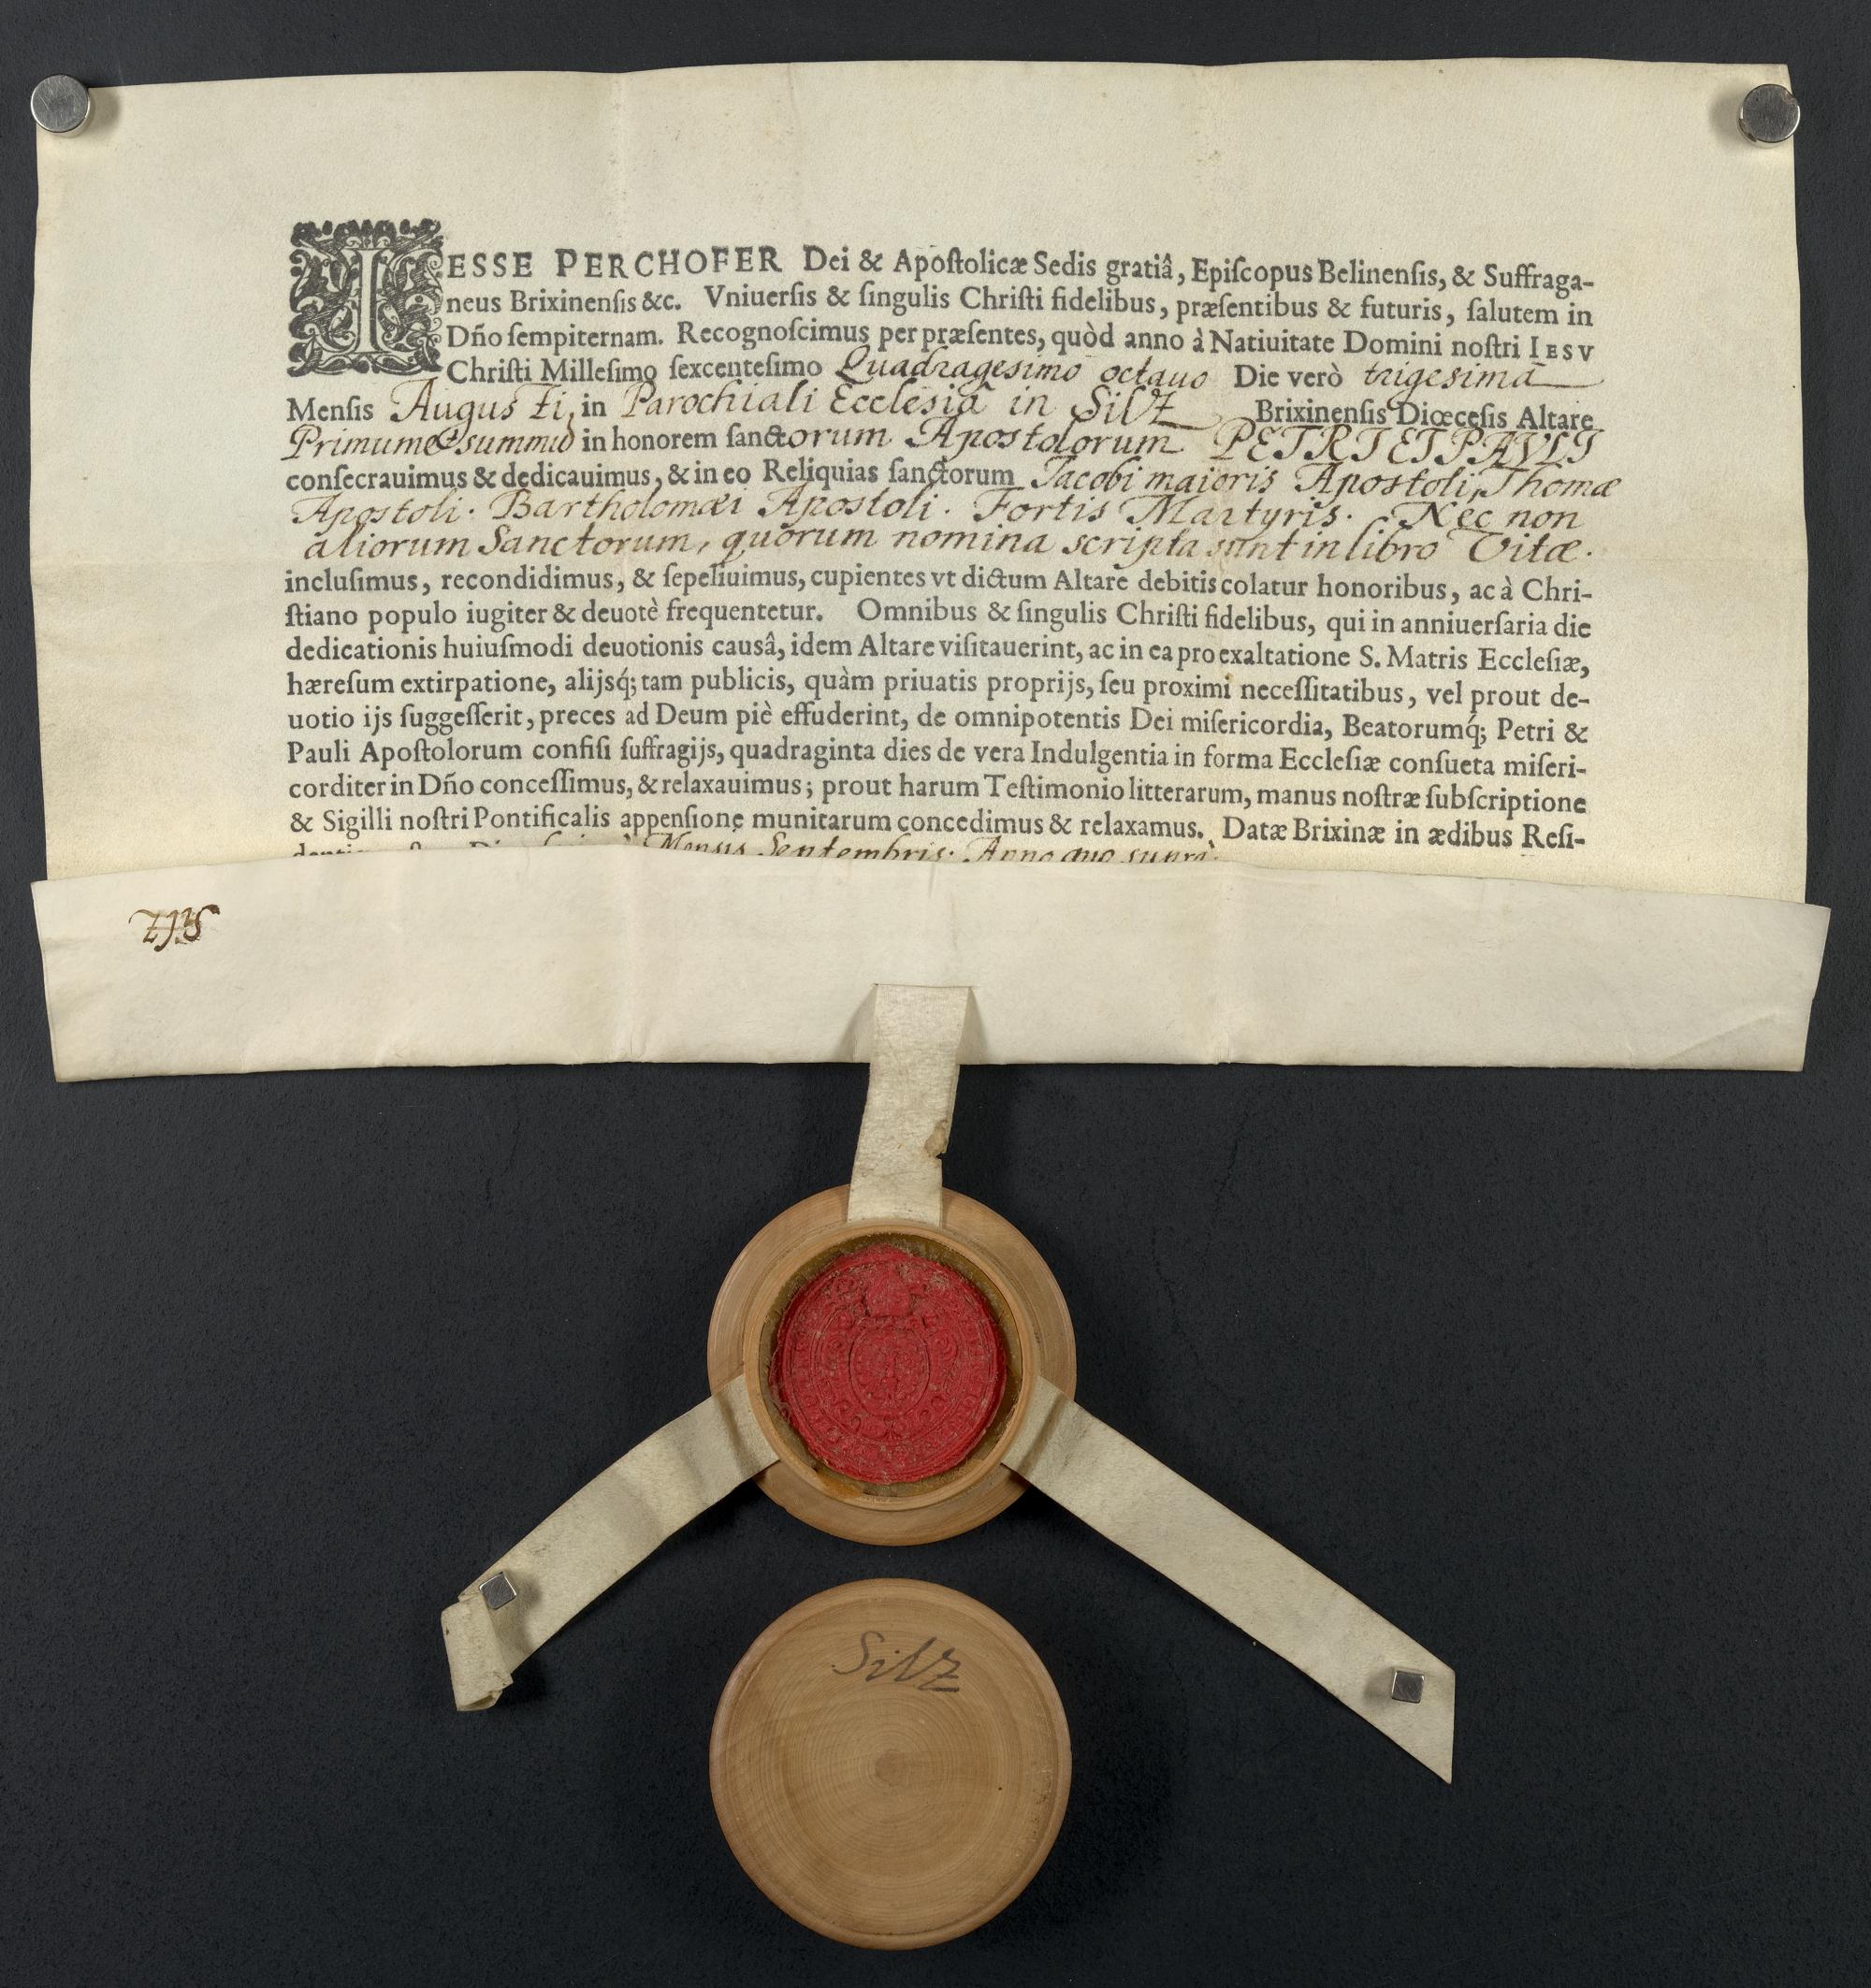 IESSE PERCHOFER Dei & Apoſtolicæ Sedis gratiâ, Epiſcopus Belinenſis, & Suffraga-
neus Brixinenſis &c. Vniuerſis & ſingulis Chriſti fidelibus, præſentibus & futuris, ſalutem in
Dño ſempiternam. Recognoſcimus per præſentes, quòd anno à Natiuitate Domini noſtri IESV
Chriſti Milleſimo ſexcenteſimo Quadragesimo octauo Die verò trigesima
Menſis Augusti, in Parochiali Ecclesiâ in Silz Brixinenſis Diœceſis Altare
Primum & summũ in honorem ſanctorum Apostolorum PETRI ET PAVLI
conſecrauimus & dedicauimus, & in eo Reliquias ſanctorum Jacobi maioris Apostoli, Thomæ
Apostoli. Bartholomæi Apostoli. Fortis Martyris. Nec non
aliorum Sanctorum, quorum nomina scripta sunt in libro Vitæ.
incluſimus, recondidimus, & ſepeliuimus, cupientes vt dictum Altare debitis colatur honoribus, ac à Chri-
ſtiano populo iugiter & deuotè frequentetur. Omnibus & ſingulis Chriſti fidelibus, qui in anniuerſaria die
dedicationis huiuſmodi deuotionis causâ, idem Altare viſitauerint, ac in ea pro exaltatione S. Matris Eccleſiæ,
hæreſum extirpatione, alijsq́; tam publicis, quàm priuatis proprijs, ſeu proximi neceſſitatibus, vel prout de-
uotio ijs ſuggeſſerit, preces ad Deum piè effuderint, de omnipotentis Dei miſericordia, Beatorumq́; Petri &
Pauli Apoſtolorum confiſi ſuffragijs, quadraginta dies de vera Indulgentia in forma Eccleſiæ conſueta miſeri-
corditer in Dño conceſſimus, & relaxauimus; prout harum Teſtimonio litterarum, manus noſtræ ſubſcriptione
& Sigilli noſtri Pontificalis appenſione munitarum concedimus & relaxamus. Datæ Brixinæ in ædibus Reſi-
Mensis Septembris. Anno quo suprà.
Silz
Silz